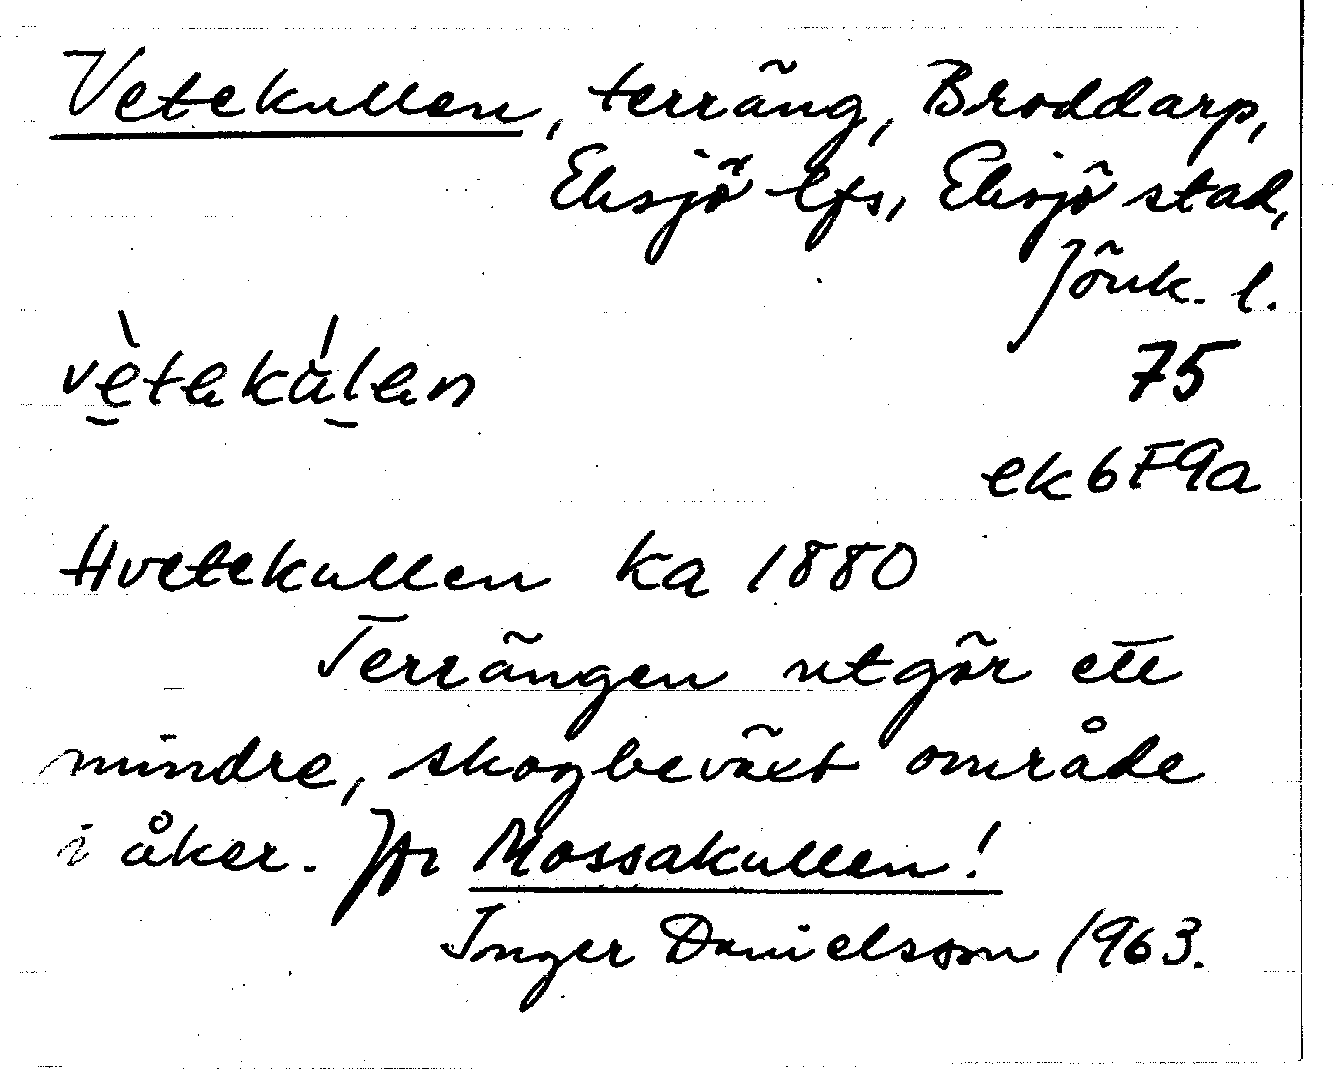 Vetekullen, terräng, Broddarp,
Eksjö lfs, Eksjö stad,
Jönk. l.
vètakúlan
75
ek 6F9a
Hvetekullen ka 1880
Terrängen utgör ett
mindre, skogbeväxt område
i åker. Jfr Mossakullen!
Inger Danielsson 1963.